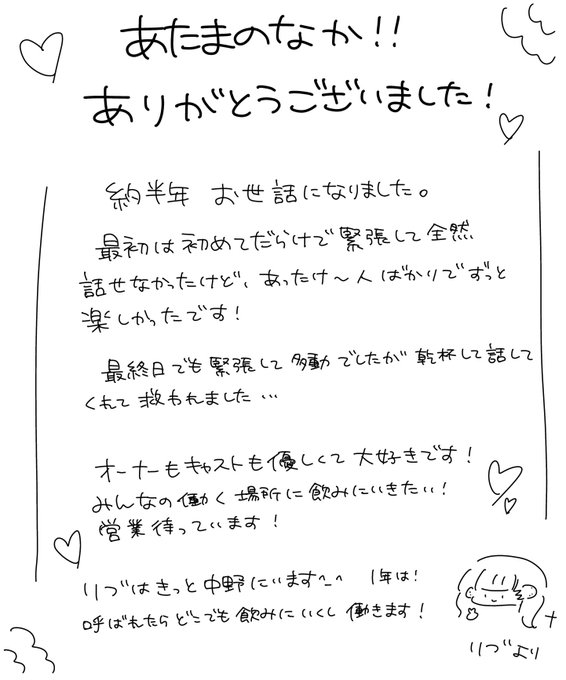 あたまのなか!!
ありがとうございました!
約半年 お世話になりました。
最初は初めてだらけで緊張して全然
話せなかったけど、あったけ〜人ばかりでずっと
楽しかったです!
最終日でも緊張して多動でしたが乾杯して話して
くれて救われました…
オーナーもキャストも優しくて大好きです!
みんなの働く場所に飲みにいきたい!
営業待っています!
りづはきっと中野にいます^_^ 1年は!
呼ばれたらどこでも飲みにいくし働きます!
りづより